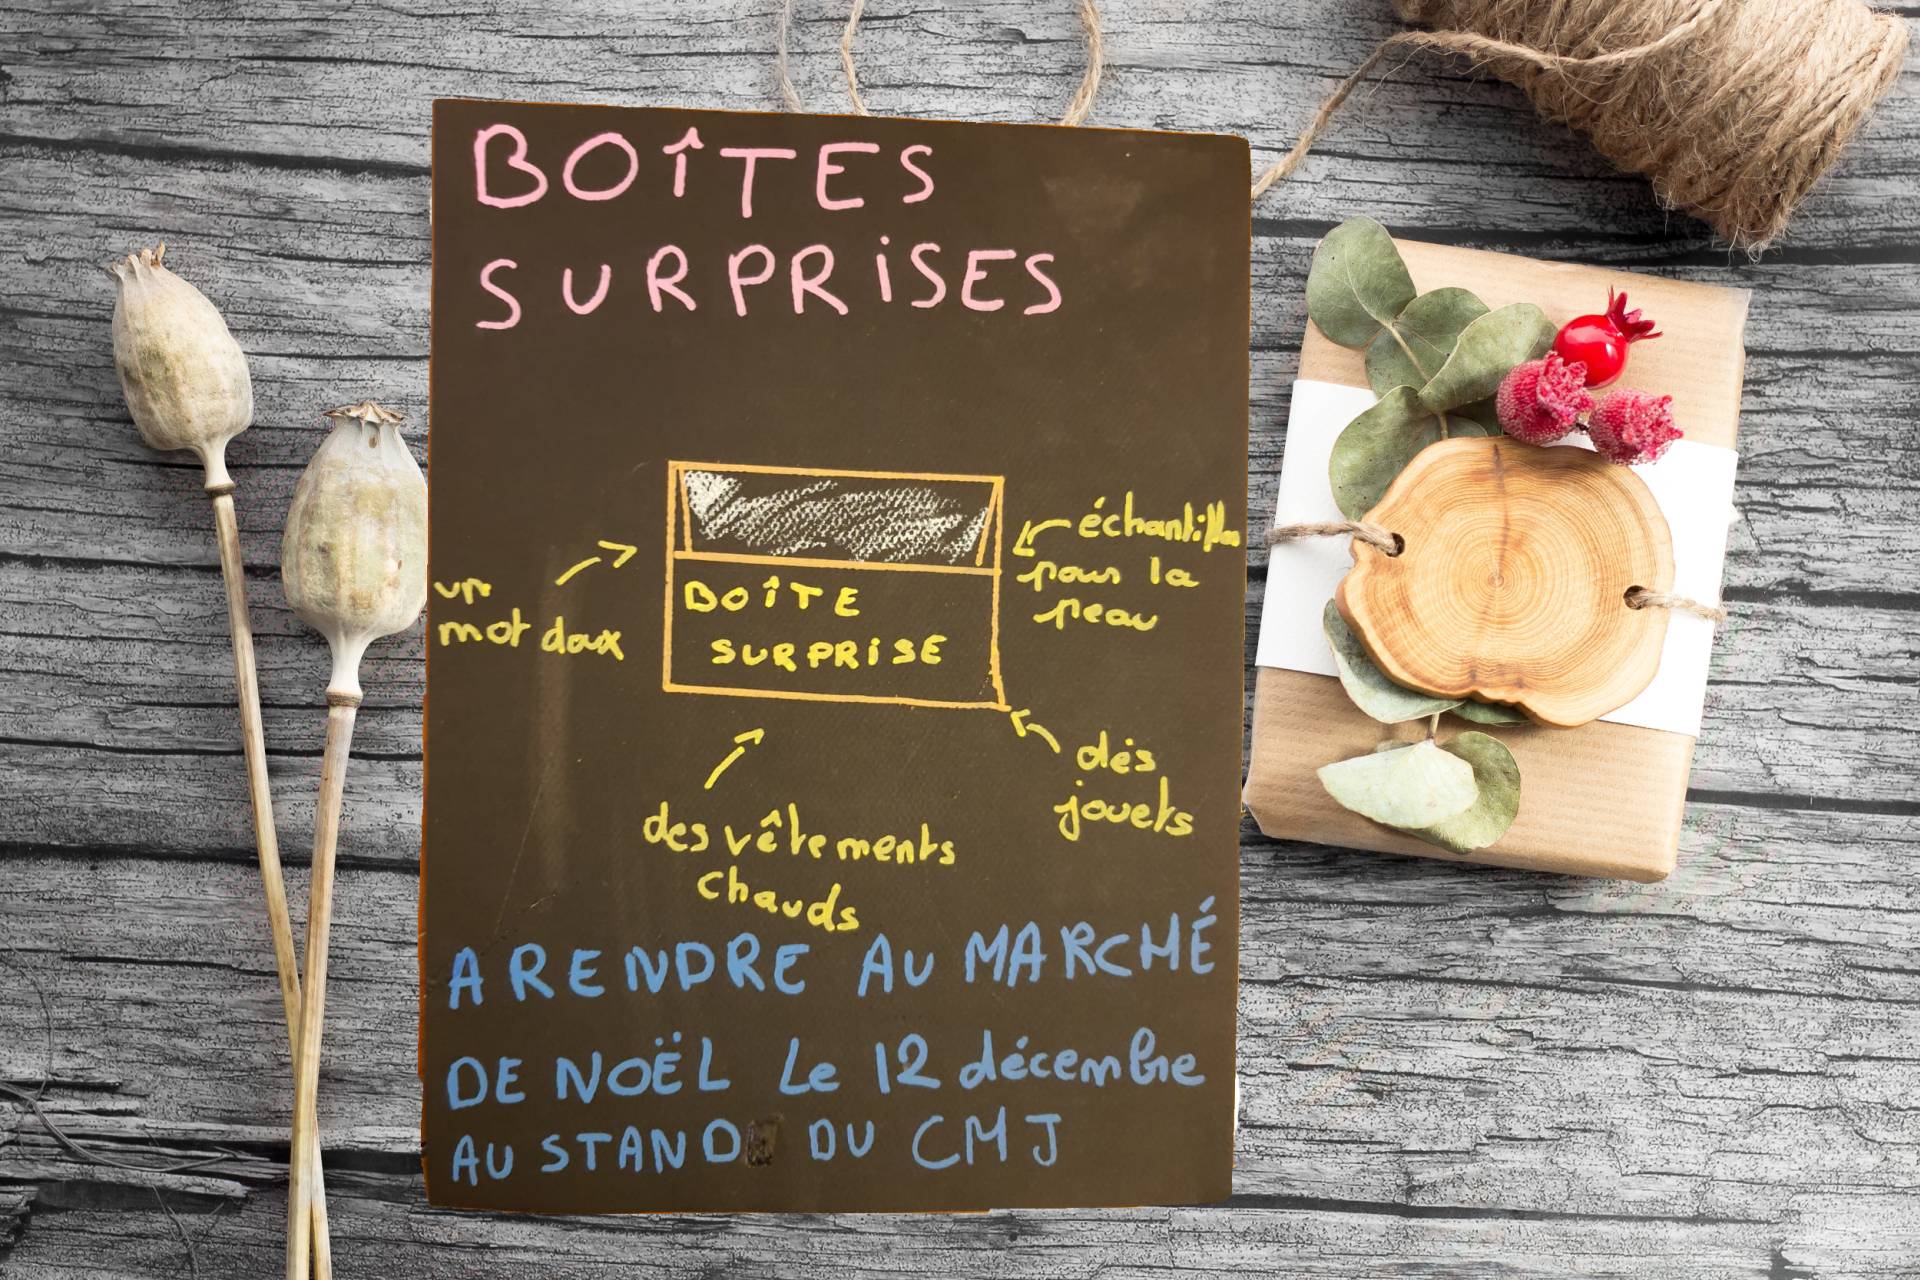 BOÎTES
SURPRISES
échantillon
pour la
peau
un
mot doux
BOÎTE
SURPRISE
dés
jouets
des vêtements
chauds
A RENDRE AU MARCHÉ
DE NOËL Le 12 décembre
AU STAND DU CMJ